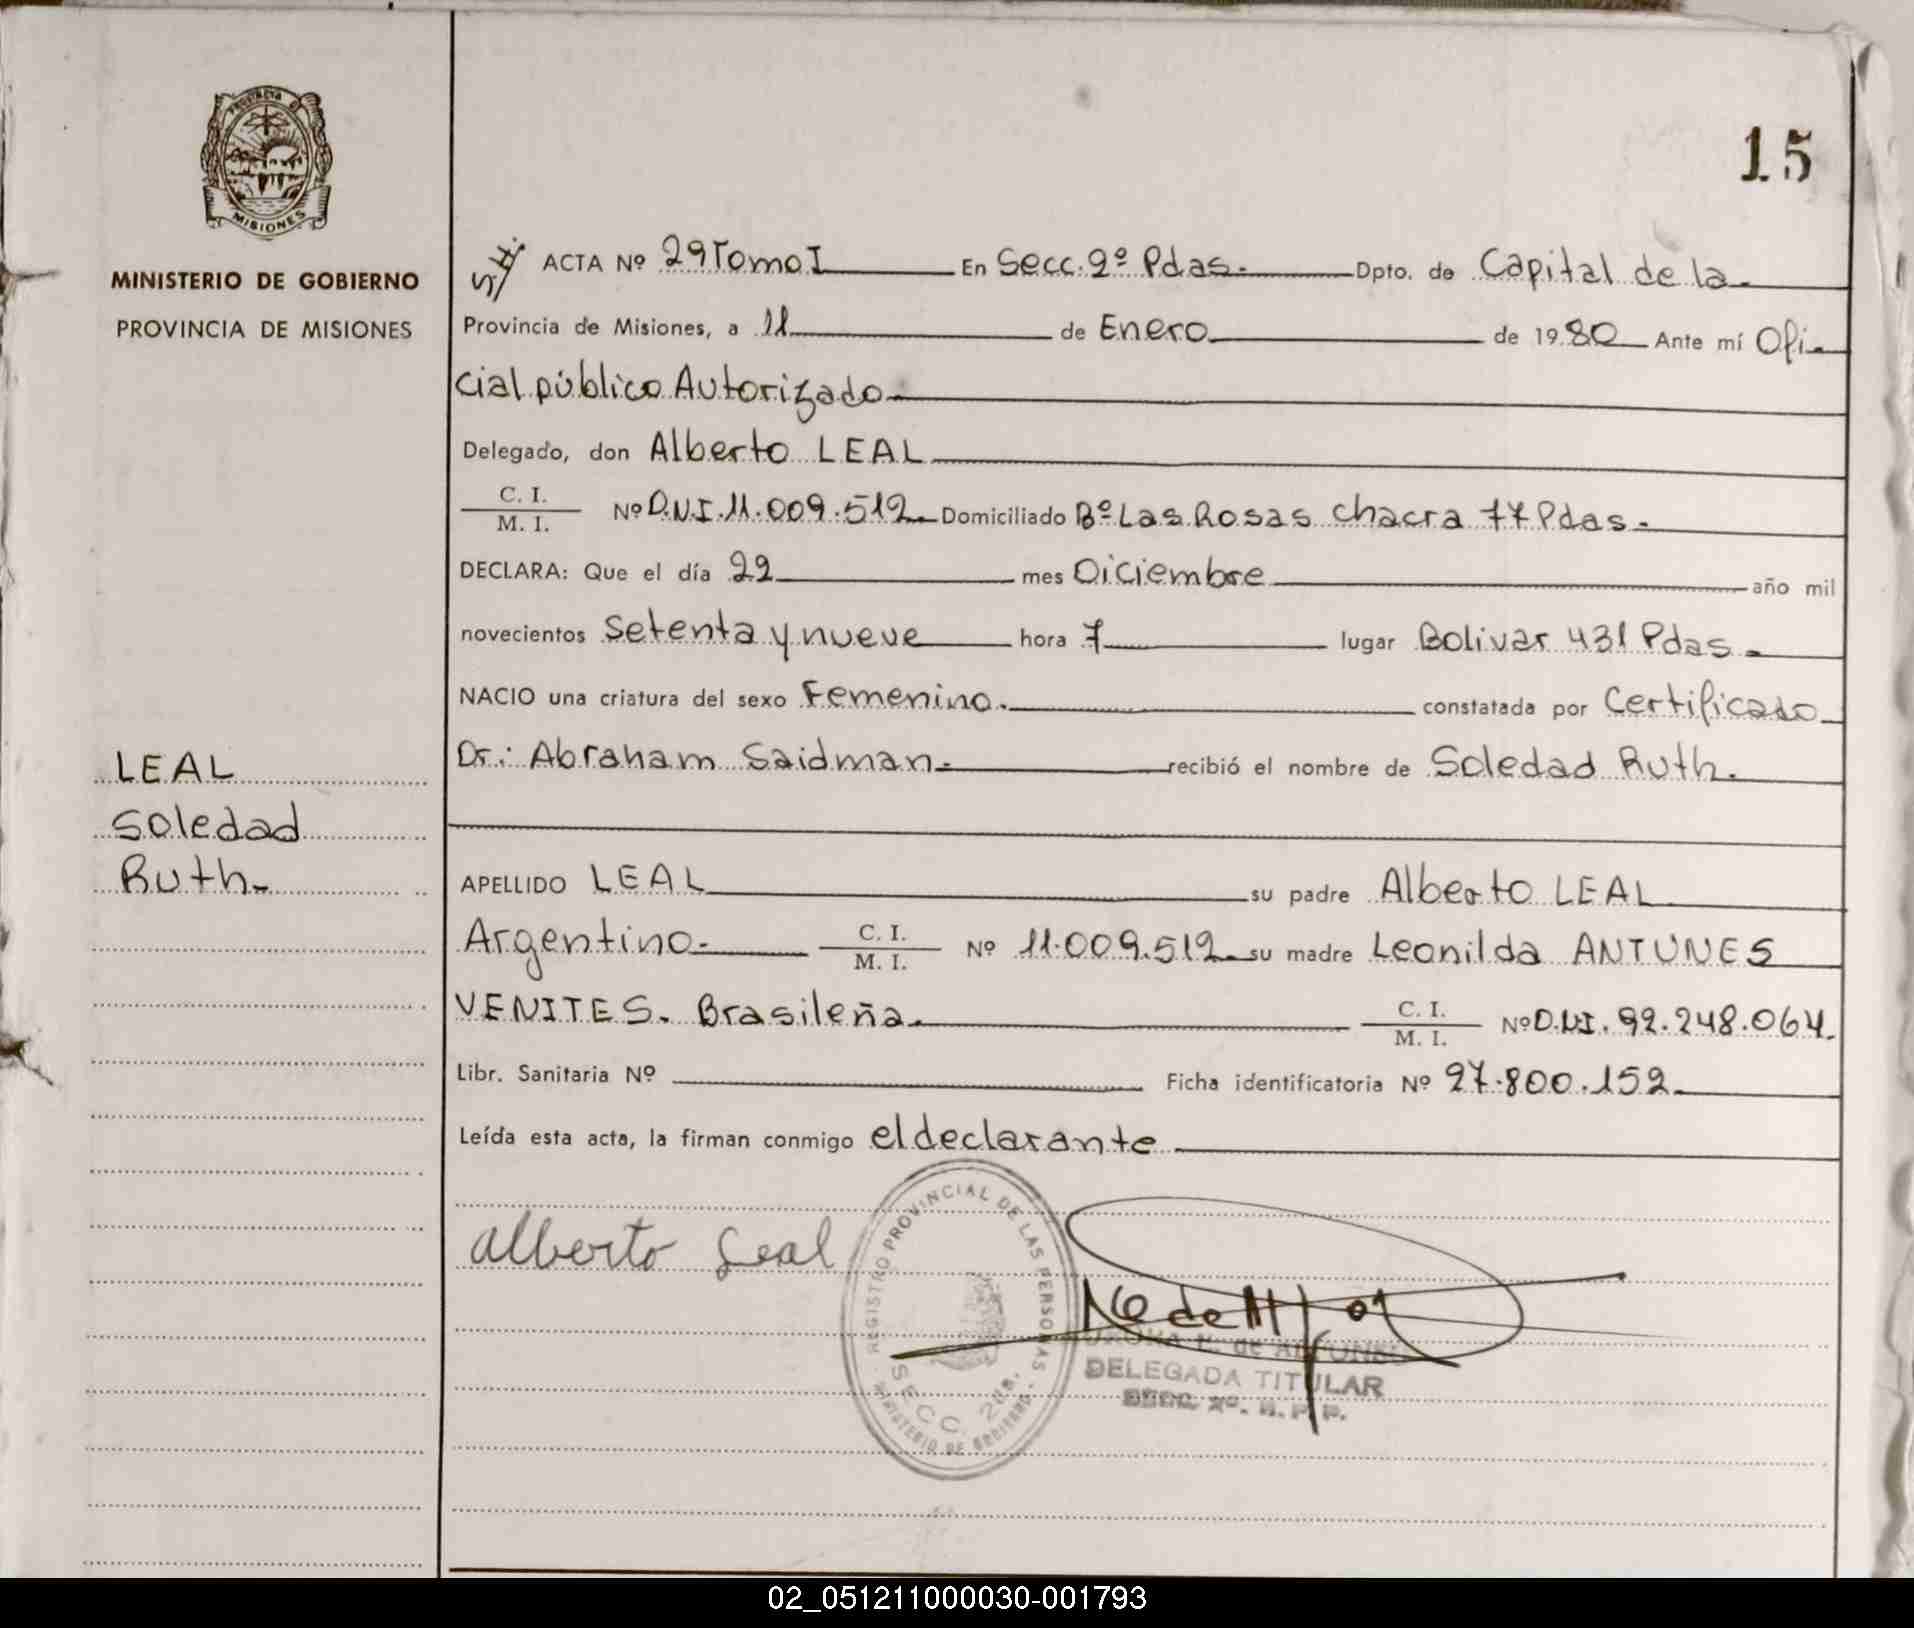 PROVINCIA DE
MISIONES
MINISTERIO DE GOBIERNO
PROVINCIA DE MISIONES
LEAL
Soledad
Ruth.
15
ACTA Nº 29 Tomo I En Secc. 2º Pdas. Dpto. de Capital de la
Provincia de Misiones, a 11 de Enero de 1980 Ante mí Ofi
cial público Autorizado
Delegado, don Alberto LEAL
C. I.
M. I. Nº D.N.I. 11.009.512 Domiciliado Bº Las Rosas chacra 77 Pdas.
DECLARA: Que el día 22 mes Diciembre año mil
novecientos setenta y nueve hora 7 lugar Bolivar 431 Pdas.
NACIO una criatura del sexo Femenino. constatada por Certificado
Dr.: Abraham Saidman. recibió el nombre de Soledad Ruth.
APELLIDO LEAL su padre Alberto LEAL
Argentino. C. I. M. I. Nº 11.009.512 su madre Leonilda ANTUNES
VENITES. Brasileña. C. I. M. I. Nº D.N.I. 92.248.064.
Libr. Sanitaria Nº Ficha identificatoria Nº 27.800.152
Leída esta acta, la firman conmigo el declarante
Alberto Leal
REGISTRO PROVINCIAL DE LAS PERSONAS
SECC. 2da.
MINISTERIO DE GOBIERNO
de ALFONSO
DELEGADA TITULAR
SECC. 2º. R. P. P.
02_051211000030-001793